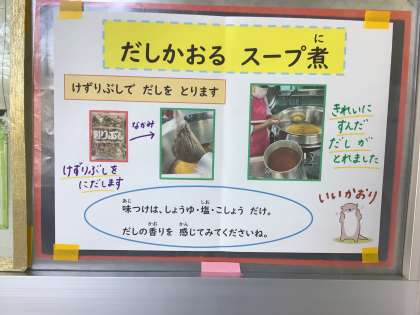 だしかおる スープ煮
に
けずりぶしで だしを とります
削りぶし
なかみ
けずりぶしを
にだします
きれいに
すんだ
だしが
とれました
いいかおり
味つけは、しょうゆ・塩・こしょう だけ。
あじ
しお
だしの香りを 感じてみてくださいね。
かお
かん